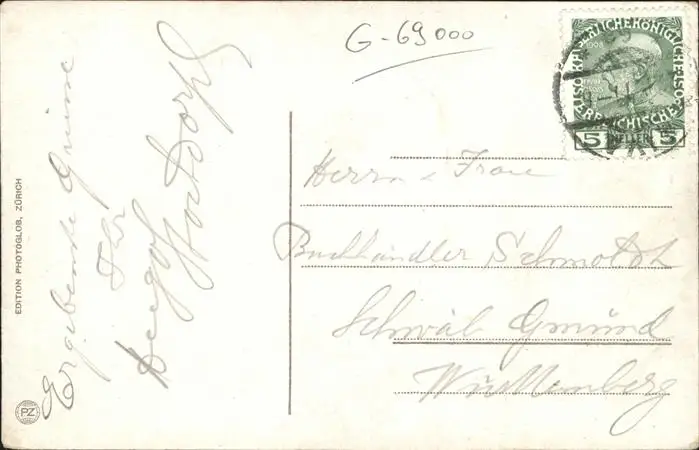 G-69000
KAISERLICHE KÖNIGLICHE
ÖSTERREICHISCHE
1908
5 HELLER 5
Herrn & Frau
Buchhändler Schmoldt
Schwäb Gmünd
Württemberg
Ergebenste Grüsse
Ihr
EDITION PHOTOGLOB, ZÜRICH
PZ